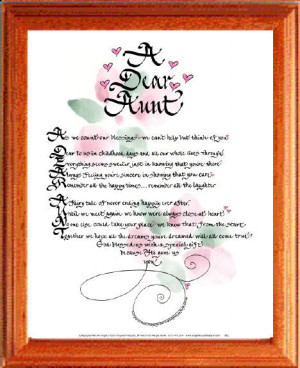 A
Dear
Aunt
As we count our blessings we can't help but think of you
Dear to us in childhood days and all our whole lives through
Everything seems sweeter just in knowing that you're there
Always feeling you're sincere in showing that you care
Remember all the happy times... remember all the laughter
A fairy tale of never ending happily ever after
Until we meet again we know we're always close at heart
No one else could take your place we know that from the start
Together we hope all the dreams you've dreamed will all come true!
God blessed us with a special gift
because He gave us
you!